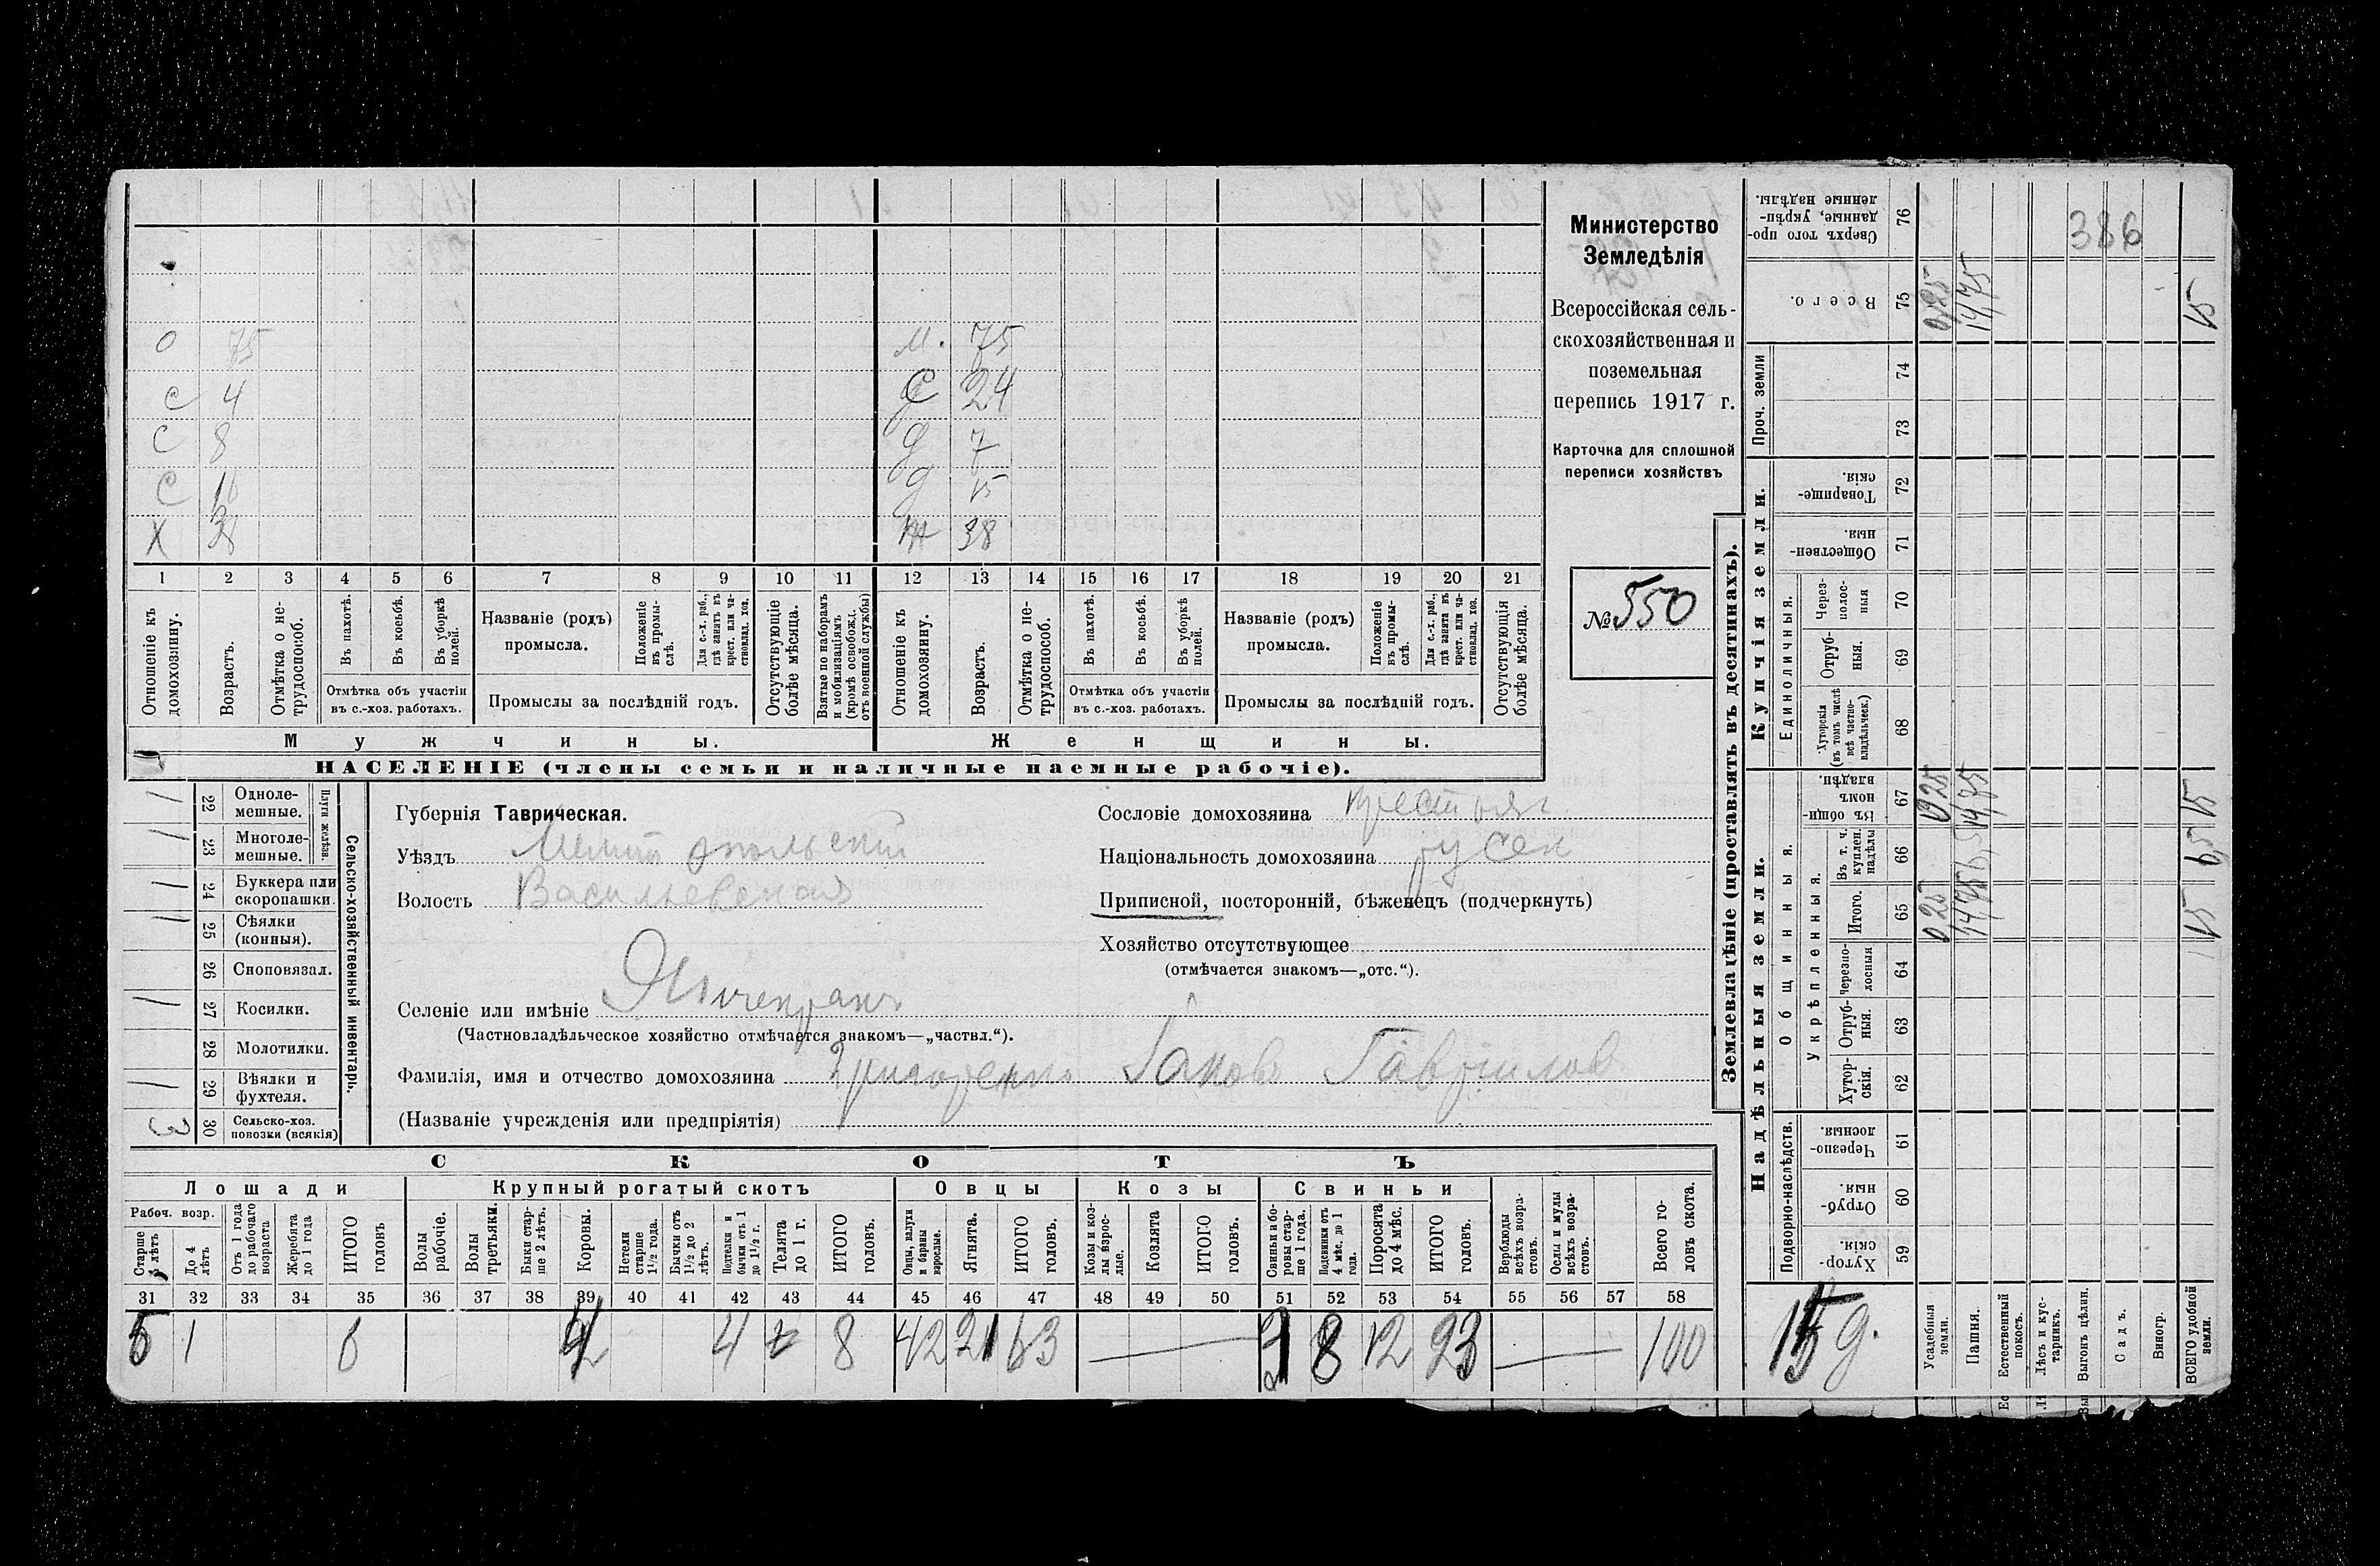 О 75 М. 75
С 4 С 24
С 8 Д 7
С 16 Д 15
Х 38 Ж 38
1 2 3 4 5 6 7 8 9 10 11 12 13 14 15 16 17 18 19 20 21
Отношеніе къ домохозяину.
Возрастъ.
Отмѣтка о нетрудоспособ.
Въ пахотѣ.
Въ косьбѣ.
Въ уборкѣ полей.
Отмѣтка объ участіи
въ с.-хоз. работахъ.
Названіе (родъ)
промысла.
Положеніе въ промыслѣ.
Для с.-х. раб., гдѣ занятъ въ крест. или частновлад. хоз.
Промыслы за послѣдній годъ.
Отсутствующіе болѣе мѣсяца.
Взятые по наборамъ и мобилизаціямъ (кромѣ освобожд. отъ военной службы)
Отношеніе къ домохозяину.
Возрастъ.
Отмѣтка о нетрудоспособ.
Въ пахотѣ.
Въ косьбѣ.
Въ уборкѣ полей.
Отмѣтка объ участіи
въ с.-хоз. работахъ.
Названіе (родъ)
промысла.
Положеніе въ промыслѣ.
Для с.-х. раб., гдѣ занята въ крест. или частновлад. хоз.
Промыслы за послѣдній годъ.
Отсутствующія болѣе мѣсяца.
Мужчины. Женщины.
НАСЕЛЕНІЕ (члены семьи и наличные наемные рабочіе).
Министерство
Земледѣлія
Всероссійская сель-
скохозяйственная и
поземельная
перепись 1917 г.
Карточка для сплошной
переписи хозяйствъ
№ 550
Сельско-хозяйственный инвентарь.
Плуги желѣзн.
22 Однолемешные. 1
23 Многолемешные. 1
24 Буккера или скоропашки. 1
25 Сѣялки (конныя). 1
26 Сноповязал.
27 Косилки. 1
28 Молотилки.
29 Вѣялки и фухтеля. 1
30 Сельско-хоз. повозки (всякія) 3
Губернія Таврическая.
Уѣздъ Мелитопольскій
Волость Васильевская
Селеніе или имѣніе Янчекракъ
(Частновладѣльческое хозяйство отмѣчается знакомъ—„частвл.“).
Фамилія, имя и отчество домохозяина Григоренко Іаковъ Гаврилов
(Названіе учрежденія или предпріятія)
Сословіе домохозяина крестьян.
Національность домохозяина русск
Приписной, посторонній, бѣженецъ (подчеркнуть)
Хозяйство отсутствующее
(отмѣчается знакомъ—„отс.“).
СКОТЪ
Лошади Крупный рогатый скотъ Овцы Козы Свиньи
Рабоч. возр.
Старше 4 лѣтъ
До 4 лѣтъ
Отъ 1 года до рабочаго возраста
Жеребята до 1 года
ИТОГО головъ
Волы рабочіе.
Волы третьяки.
Быки старше 2 лѣтъ.
Коровы.
Нетели старше 1½ года.
Бычки отъ 1½ до 2 лѣтъ.
Подтелки и бычки отъ 1 до 1½ г.
Телята до 1 г.
ИТОГО головъ.
Овцы, валухи и бараны взрослые.
Ягнята.
ИТОГО головъ.
Козы и козлы взрослые.
Козлята
ИТОГО головъ.
Свиньи и боровы старше 1 года.
Подсвинки отъ 4 мѣс. до 1 года.
Поросята до 4 мѣс.
ИТОГО головъ.
Верблюды всѣхъ возрастовъ.
Ослы и мулы всѣхъ возрастовъ.
Всего головъ скота.
31 32 33 34 35 36 37 38 39 40 41 42 43 44 45 46 47 48 49 50 51 52 53 54 55 56 57 58
5 1 6 4 8 42 21 63 — 3 8 12 23 — 100
Землевладѣніе (проставлять въ десятинахъ).
Купчія земли.
Надѣльныя земли.
Сверхъ того проданные, укрѣпленные надѣлы. 76
386
Всего. 75 0,25 14,75 15
Проч. земли 74 73
Товарищескія. 72
Общественныя. 71
Единоличныя.
Черезполосныя 70
Отрубныя. 69
Хуторскія (въ томъ числѣ всѣ частновладѣльческ.) 68
Общинныя.
Въ общинномъ владѣн. 67 0,25 14,75 15
Укрѣпленныя.
Въ т. ч. куплен. надѣлы 66 6,5 6,5
Итого. 65 0,25 14,75 15
Черезполосныя 64
Отрубныя. 63
Хуторскія. 62
Подворно-наслѣдств.
Черезполосныя. 61
Отрубныя. 60
Хуторскія. 59
15 д.
Усадебныя земли.
Пашня.
Естественный покосъ.
Лѣсъ и кустарникъ.
Выгонъ цѣлин.
Садъ.
Виногр.
ВСЕГО удобной земли.